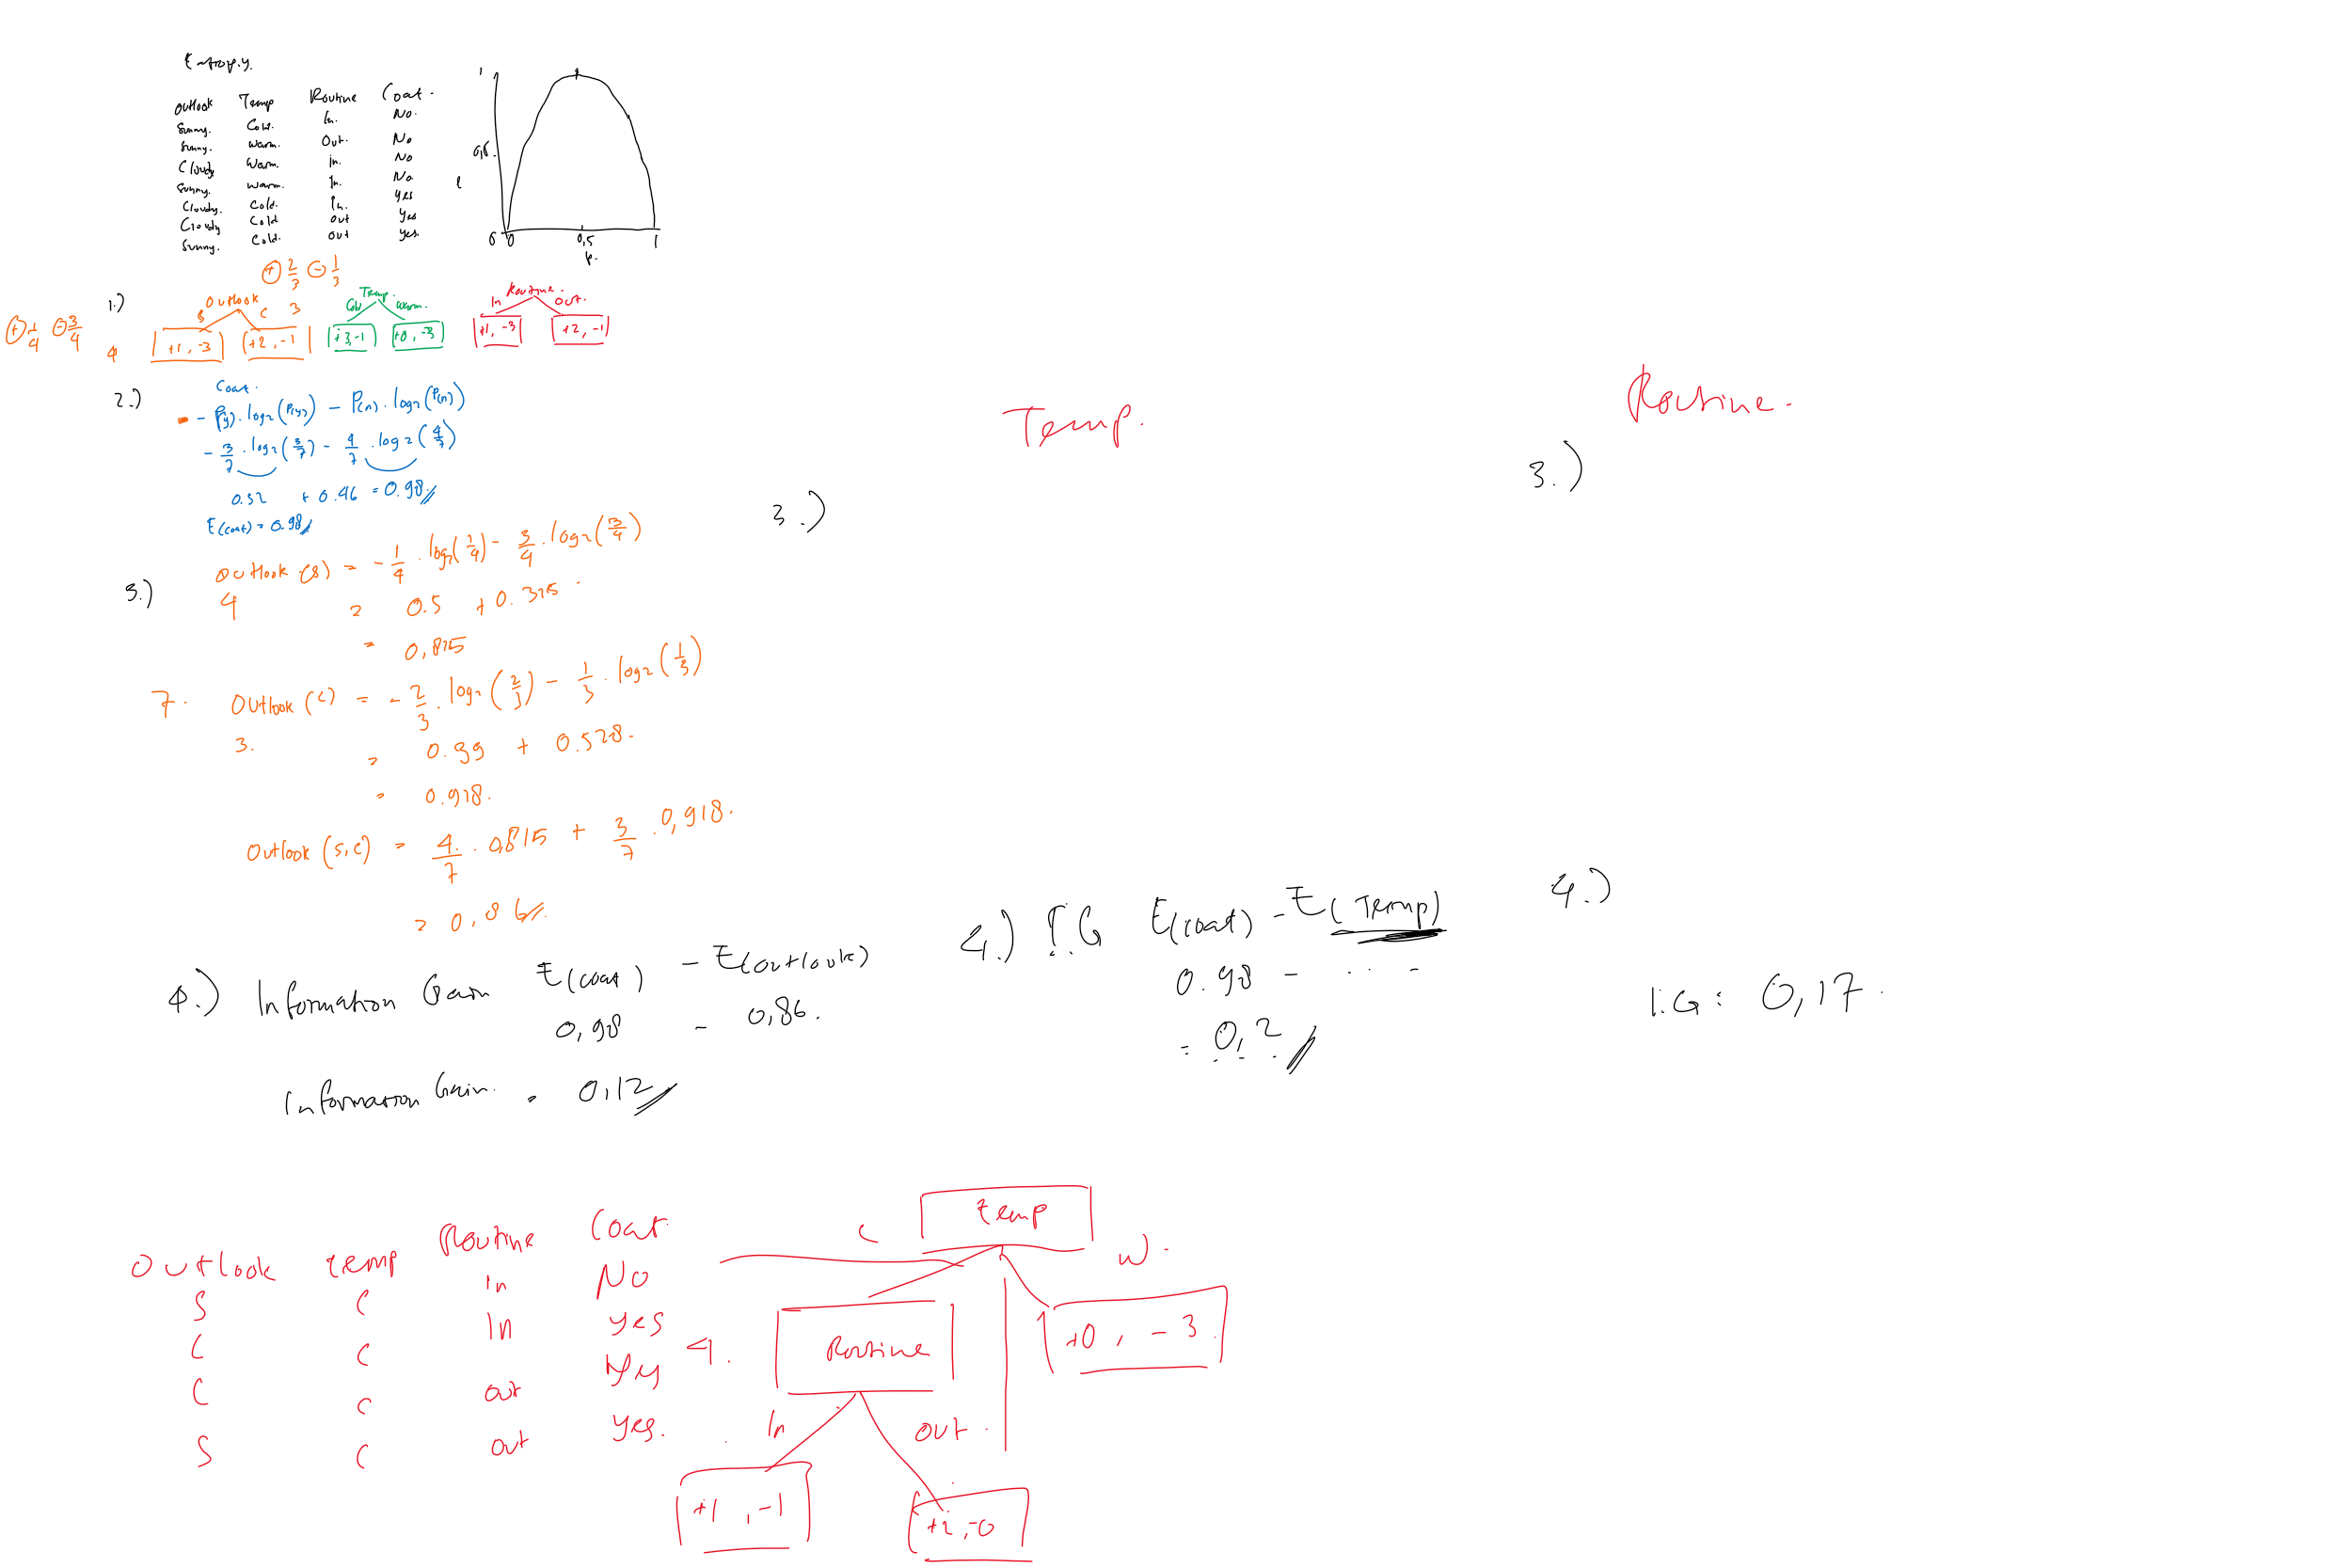 Entropy.
Outlook Temp Routine Coat.
Sunny. Cold. In. No.
Sunny. Warm. Out. No
Cloudy Warm. in. No
Sunny. Warm. In. No.
Cloudy. Cold. In. Yes
Cloudy Cold out Yes
Sunny. Cold. out Yes.
1
0,5.
0 0 0,5 1
p.
⊕ 2/3 ⊖ 1/3
1.)
Outlook
S C 3
⊕ 1/4 ⊖ 3/4
4
+1, -3 +2, -1
Temp.
Cold Warm.
+3, -1 +0, -3
Routine.
In Out.
+1, -3 +2, -1
2.)
Coat.
- P(y). log2 (P(y)) - P(n). log2 (P(n))
- 3/7 . log2 (3/7) - 4/7 . log2 (4/7)
0.52 + 0.46 = 0.98
E(coat) = 0.98
Temp.
Routine.
3.)
3.)
3.)
Outlook (S) = - 1/4 . log2 (1/4) - 3/4 . log2 (3/4)
4
= 0.5 + 0.315
= 0,815
7.
Outlook (C) = - 2/3 . log2 (2/3) - 1/3 . log2 (1/3)
3.
= 0.39 + 0.528.
= 0.918.
Outlook (S,C) = 4/7 . 0,815 + 3/7 . 0,918.
= 0,86
4.) Information Gain E(coat) - E(outlook)
0,98 - 0,86.
Information Gain. = 0,12
4.) I.G E(coat) - E(Temp)
0.98 - ...
= 0,2
4.)
I.G : 0,17.
Outlook temp Routine Coat
S C In No
C C In Yes
C C out Yes
S C out Yes.
temp
C W.
4.
Routine
+0, -3.
In out.
+1, -1
+2, -0